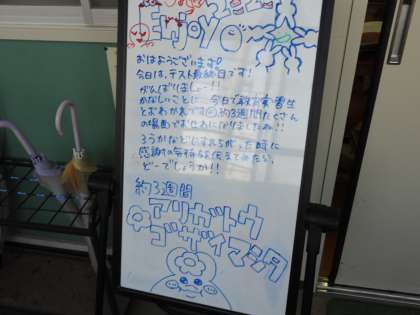 ENJOY
おはようございます!
今日は、テスト最終日です!
がんばりましょー!!
かなしいことに…今日で教育実習生
とおわかれです 約3週間たくさん
の場面でおせわになりましたね!!
ろうかなどですれちがった時に
感謝の気持ちを伝えてみたら、
どーでしょうか!!
約3週間
アリガトウ
ゴザイマシタ